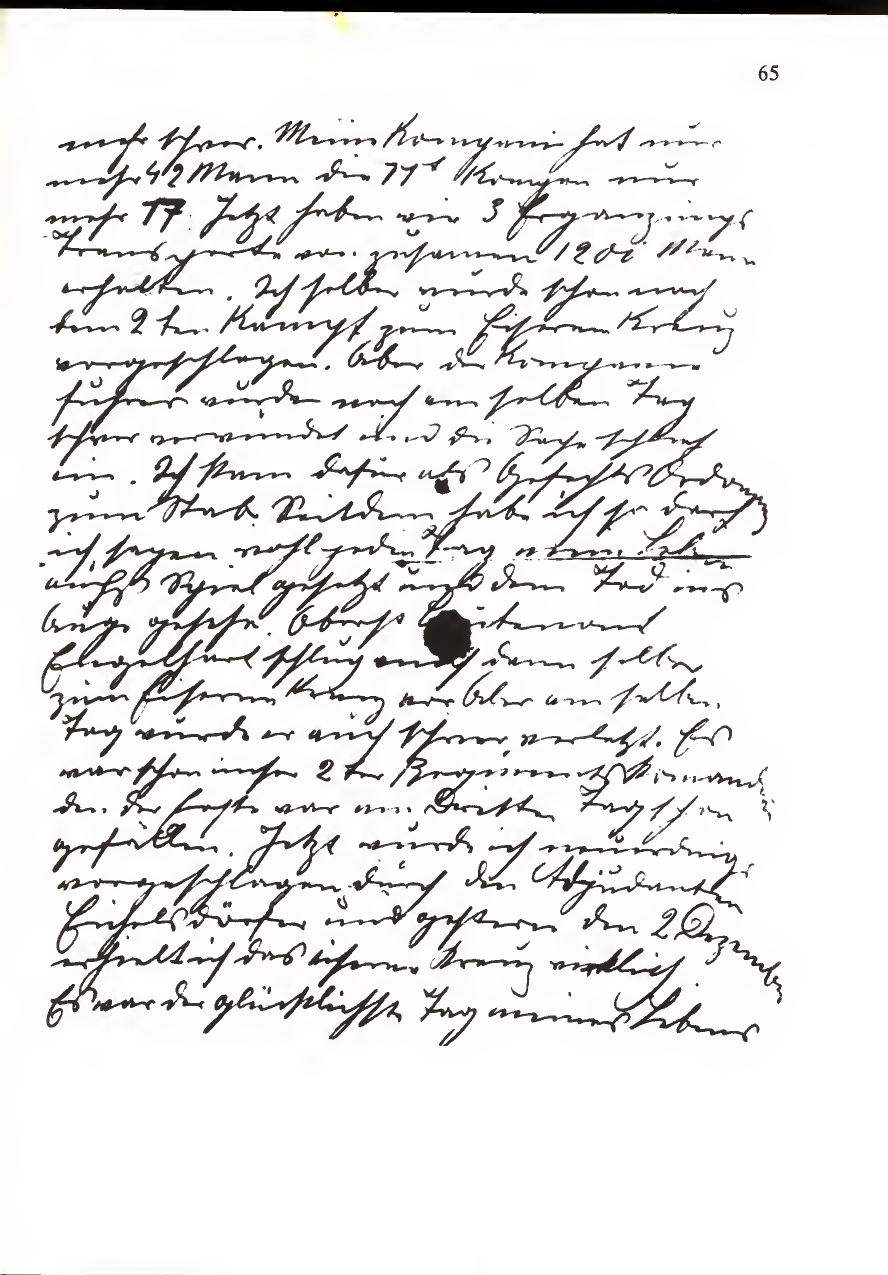 65
mehr schwer. Meine Kompanie hat nur
mehr 42 Mann die 11te Kompan nur
mehr 17. Jetzt haben wir 3 Erganzungs
Transporte von zusamen 1200 Mann
erhalten. Ich selber wurde schon nach
dem 2ten Kampf zum Eisernen Kreuz
vorgeschlagen. Aber der Kompanie
führer wurde noch am selben Tag
schwer verwundet und die Sache schlief
ein. Ich kam dafür als Gefechts Ordonanz
zum Stab. Seitdem habe ich so darf
ich sagen wohl jeden Tag mein Leben
aufs Spiel gesetzt und dem Tod ins
Auge gesehe. Oberst utenant
Engelhart schlug mich dann selber
zum Eisernen Kreuz vor Aber am selben
Tag wurde er auch schwer verletzt. Es
war schon unser 2ter Regiments Komand
den der Erste war am Dritten Tag schon
gefallen. Jetzt wurde ich neuerdings
vorgeschlagen durch den Adjudanten
Eichelsdörfer und gestern den 2 Dezember
erhielt ich das eiserne Kreuz wirklich.
Es war der glücklichste Tag meines Lebens